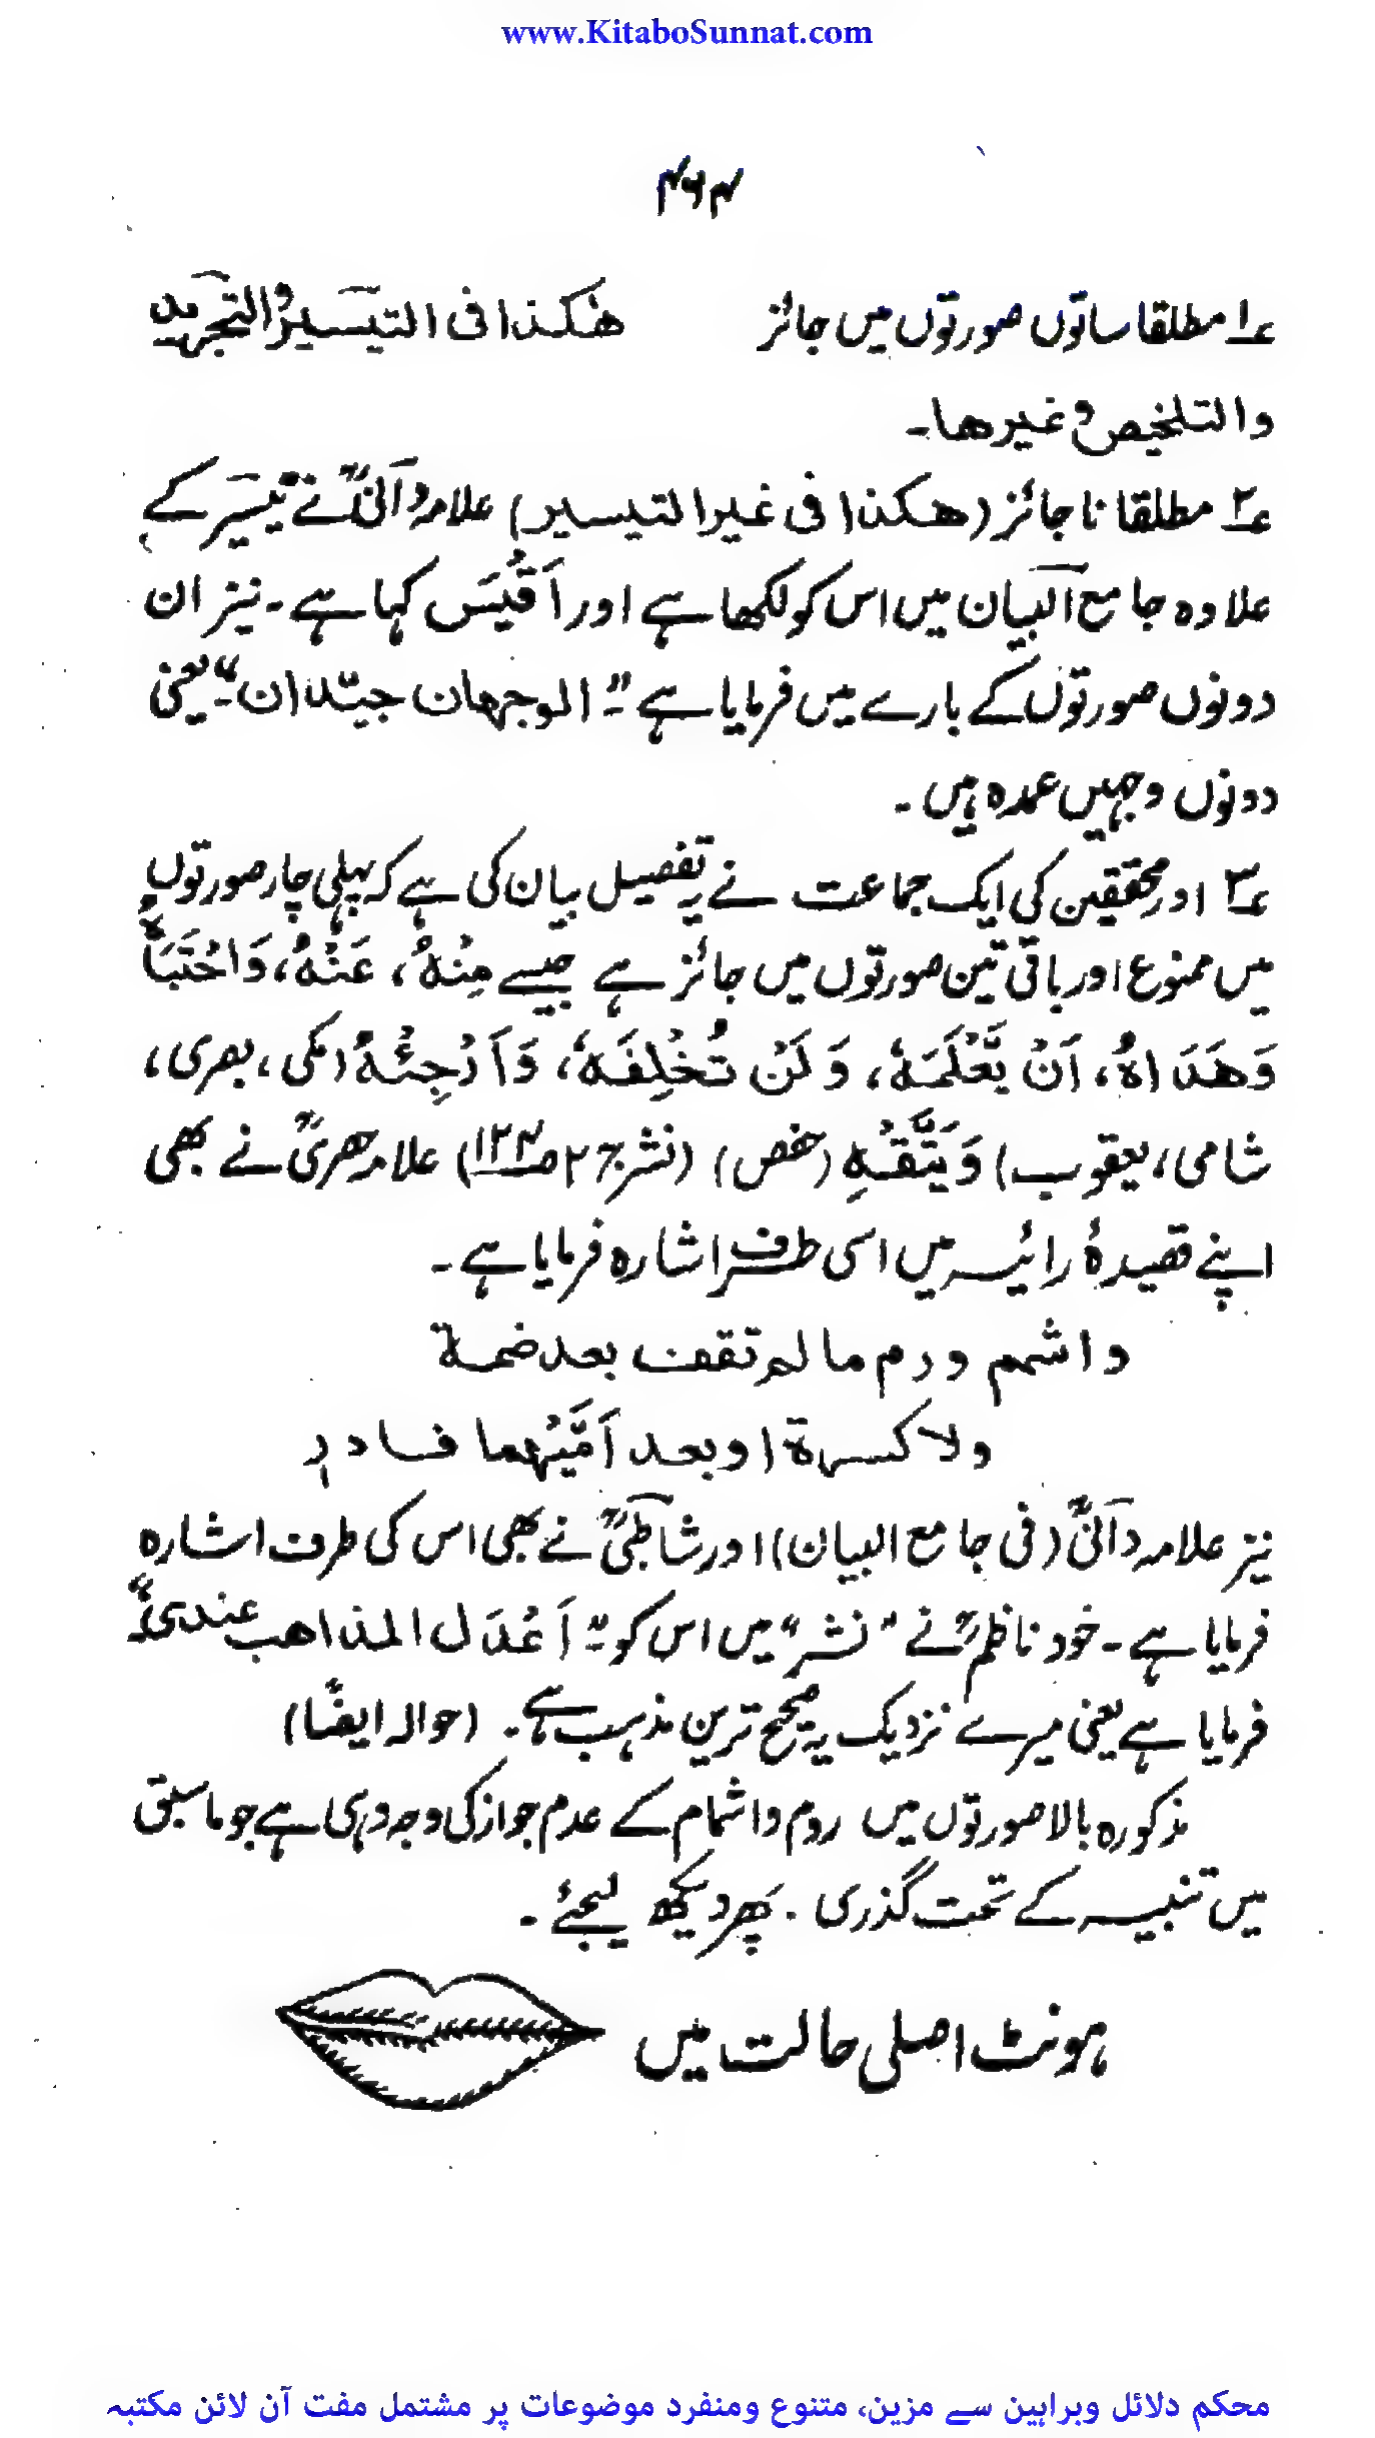 www.KitaboSunnat.com
۴۶۴
۱؎ مطلقا ساتوں صورتوں میں جائز هٰكذا فى التيسير والتجريد
والتلخيص وغيرها۔
۲؎ مطلقا ناجائز (هكذا فى غير التيسير) علامہ دانیؒ نے تیسیر کے
علاوہ جامع البیان میں اس کو لکھا ہے اور اَقْیَس کہا ہے۔ نیز ان
دونوں صورتوں کے بارے میں فرمایا ہے "الوجهان جيّدان"۔ یعنی
دونوں وجہیں عمدہ ہیں۔
۳؎ اور محققین کی ایک جماعت نے یہ تفصیل بیان کی ہے کہ پہلی چار صورتوں
میں ممنوع اور باقی تین صورتوں میں جائز ہے جیسے مِنْهُ، عَنْهُ، وَاجْتَبَاهُ
وَهَدَاهُ، اَنْ يَّعْلَمَهٗ، وَلَنْ تُخْلِفَهٗ، وَاَرْجِئْهُ (مکی، بصری،
شامی، یعقوب) وَيَتَّقْهِ (حفص) (نشر ج۲ ص۱۲۴) علامہ حصریؒ نے بھی
اپنے قصیدۂ رائیہ میں اسی طرف اشارہ فرمایا ہے۔
واشمم ورم مالم تقف بعد ضمة
ولا كسرة او بعد اُمَّيْهما فادر
نیز علامہ دانیؒ (فی جامع البیان) اور شاطبیؒ نے بھی اس کی طرف اشارہ
فرمایا ہے۔ خود ناظمؒ نے "نشر" میں اس کو "اَعْدَل المذاهب عندى"
فرمایا ہے یعنی میرے نزدیک یہ صحیح ترین مذہب ہے۔ (حوالہ ایضًا)
مذکورہ بالا صورتوں میں روم و اشمام کے عدم جواز کی وجہ وہی ہے جو ماسبق
میں تنبیہ کے تحت گذری۔ پھر دیکھ لیجئے۔
ہونٹ اصلی حالت میں
محکم دلائل وبراہین سے مزین، متنوع ومنفرد موضوعات پر مشتمل مفت آن لائن مکتبہ